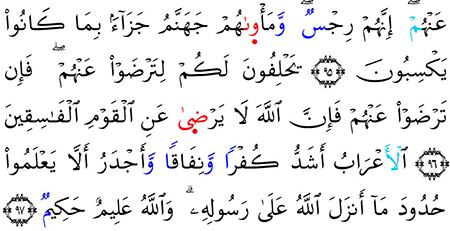 عَنْهُمْ ۖ إِنَّهُمْ رِجْسٌ ۖ وَّمَأْوىٰهُمْ جَهَنَّمُ جَزَآءًۢ بِمَا كَانُوا۟
يَكْسِبُونَ ﴿٩٥﴾ يَحْلِفُونَ لَكُمْ لِتَرْضَوْا۟ عَنْهُمْ ۖ فَإِن
تَرْضَوْا۟ عَنْهُمْ فَإِنَّ ٱللَّهَ لَا يَرْضىٰ عَنِ ٱلْقَوْمِ ٱلْفَـٰسِقِينَ
﴿٩٦﴾ ٱلْأَعْرَابُ أَشَدُّ كُفْرًا وَّنِفَاقًا وَّأَجْدَرُ أَلَّا يَعْلَمُوا۟
حُدُودَ مَآ أَنزَلَ ٱللَّهُ عَلَىٰ رَسُولِهِۦ ۗ وَٱللَّهُ عَلِيمٌ حَكِيمٌ ﴿٩٧﴾